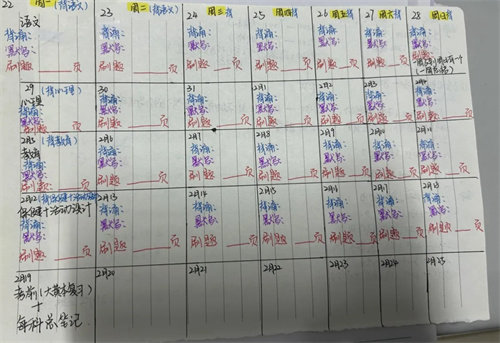 22 周一(背语文)
23 周二(背语文)
24 周三背
25 周四背
26 周五背
27 周六背
28 周日背
语文
背诵:
默写:
刷题 页
背诵:
默写:
刷题 页
背诵:
默写:
刷题 页
背诵:
默写:
刷题 页
背诵:
默写:
刷题 页
背诵:
默写:
刷题 页
背诵:
默写:
刷题 页
29
30
31
2月1
2月2
2月3
2月4
心理
背诵:
默写:
刷题 页
背诵:
默写:
刷题 页
背诵:
默写:
刷题 页
背诵:
默写:
刷题 页
背诵:
默写:
刷题 页
背诵:
默写:
刷题 页
背诵:
默写:
刷题 页
2月5(背教育)
2月7
2月8
2月9
2月10
2月11
教育
背诵:
默写:
刷题 页
背诵:
默写:
刷题 页
背诵:
默写:
刷题 页
背诵:
默写:
刷题 页
背诵:
默写:
刷题 页
背诵:
默写:
刷题 页
背诵:
默写:
刷题 页
2月12
2月13
2月14
2月15
2月16
2月17
2月18
保健+活动设计
背诵:
默写:
刷题 页
背诵:
默写:
刷题 页
背诵:
默写:
刷题 页
背诵:
默写:
刷题 页
背诵:
默写:
刷题 页
背诵:
默写:
刷题 页
背诵:
默写:
刷题 页
2月19
2月20
2月21
2月22
2月23
2月24
2月25
考前(大黄本复习)
+
每科总笔记